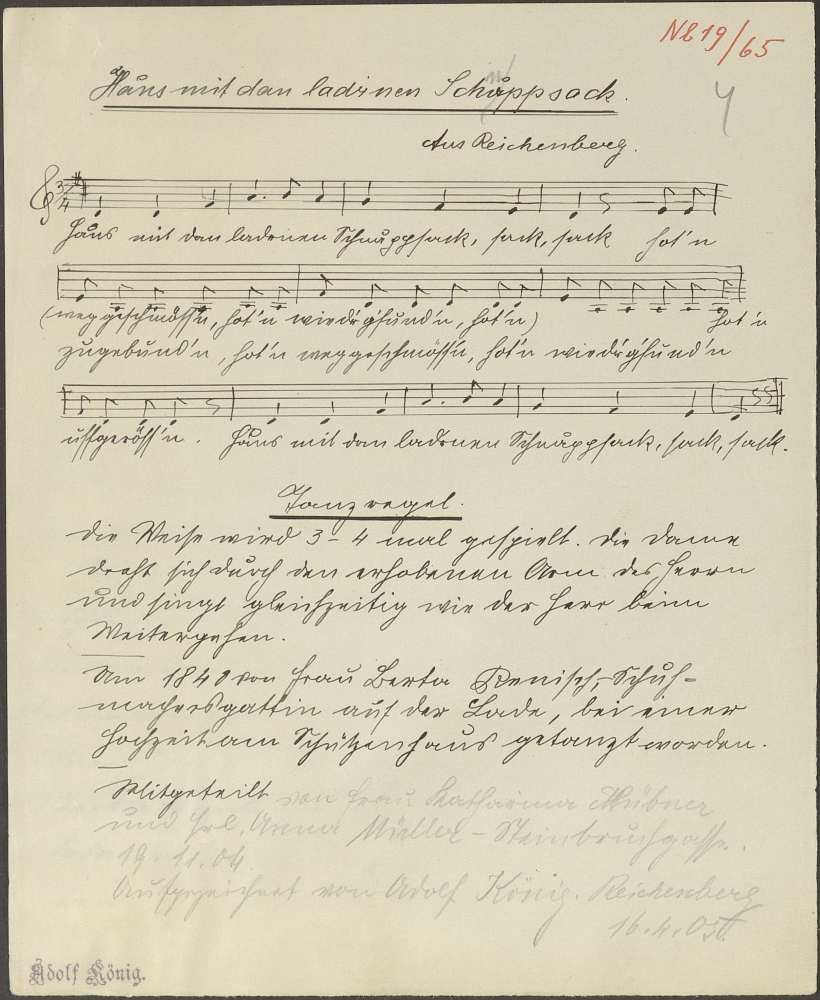 N619/65
4
Håns mit dan ladrnen Schnåppsack.
Aus Reichenberg.
3/4
Håns mit dan ladrnen Schnåppsack, sack, sack hot'n
(weggeschmöss'n, hot'n wiedr g'fund'n, hot'n) hot'n
zugebund'n, hot'n weggeschmöss'n, hot'n wiedr g'fund'n
uffgeröss'n. Håns mit dan ladrnen Schnåppsack, sack, sack.
Tanzregel.
Die Weise wird 3-4 mal gespielt. Die Dame
dreht sich durch den erhobenen Arm des Herrn
und singt gleichzeitig wie der Herr beim
Weitergehen.
Um 1840 von Frau Berta Renisch, Schuh-
machersgattin auf der Lade, bei einer
Hochzeit am Schützenhaus getanzt worden.
Mitgeteilt von Frau Katharina Hübner
und Frl. Anna Müller - Steinbruchgasse.
19.11.04
Aufgezeichnet von Adolf König. Reichenberg
16.4.05
Adolf König.